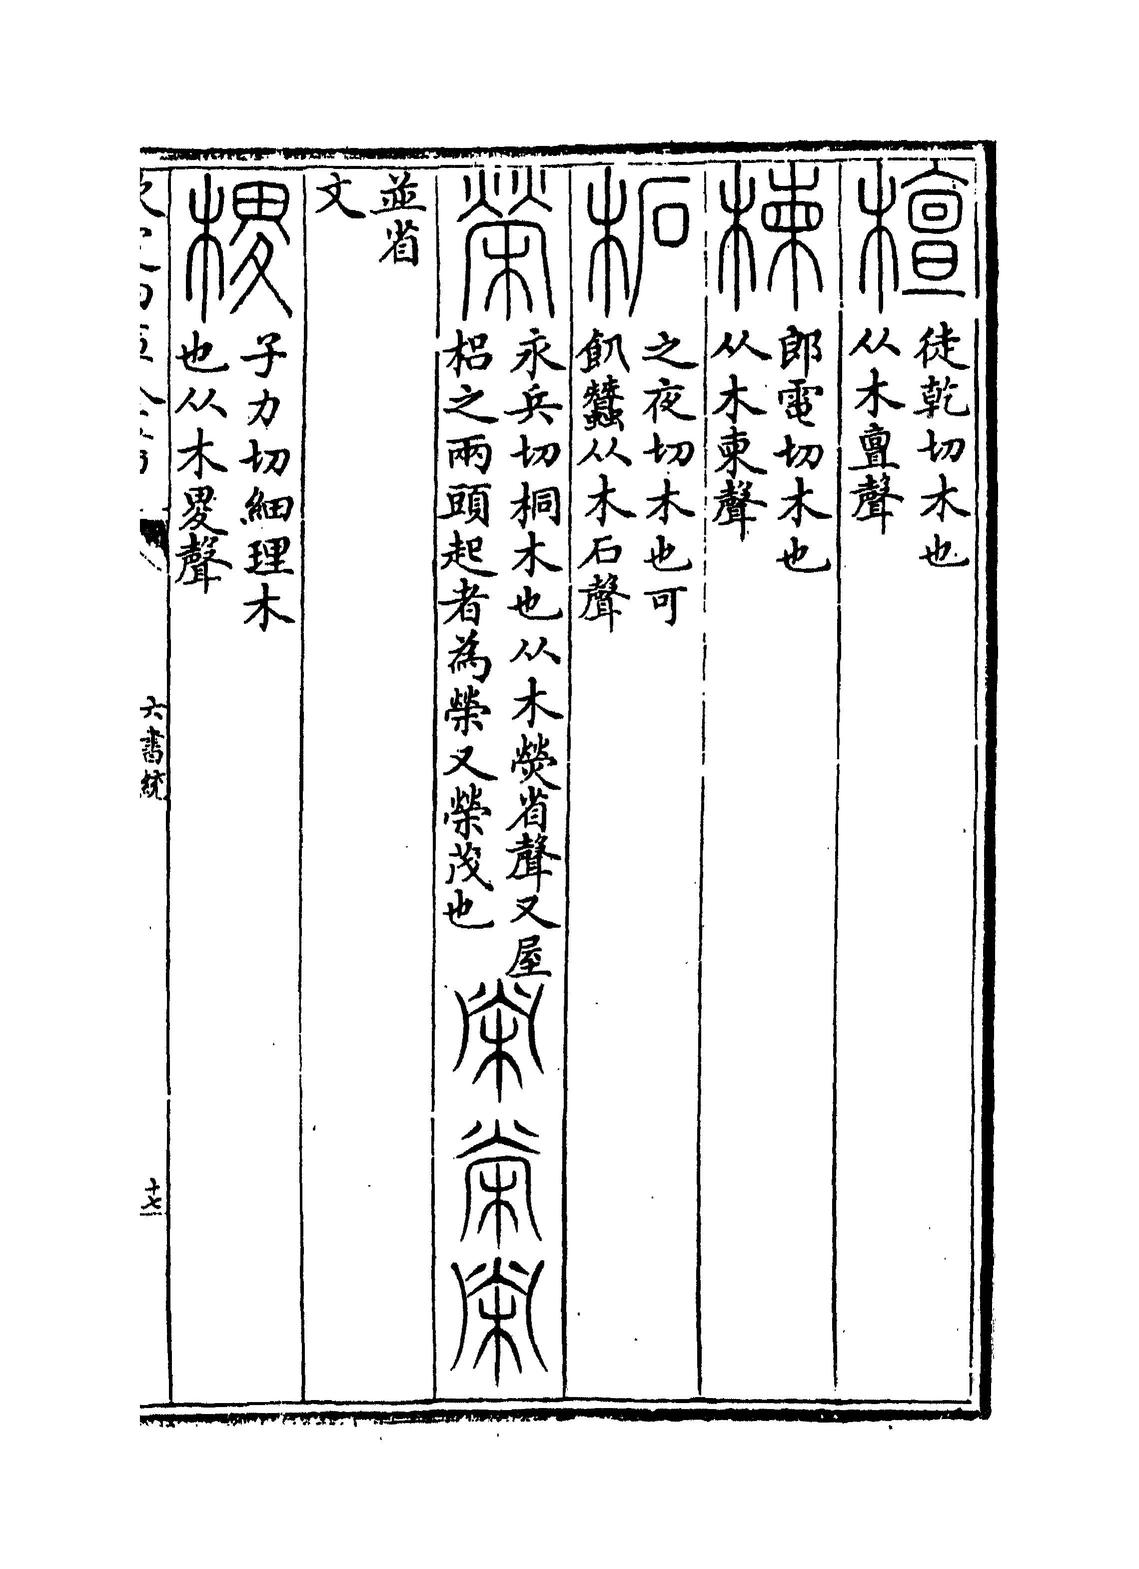 檀
徒乾切木也
从木亶聲
楝
郎電切木也
从木柬聲
柘
之夜切木也可
飤蠶从木石聲
榮
永兵切桐木也从木熒省聲又屋
梠之兩頭起者為榮又榮茂也
並省
文
稷
子力切細理木
也从木畟聲
六書統
十七